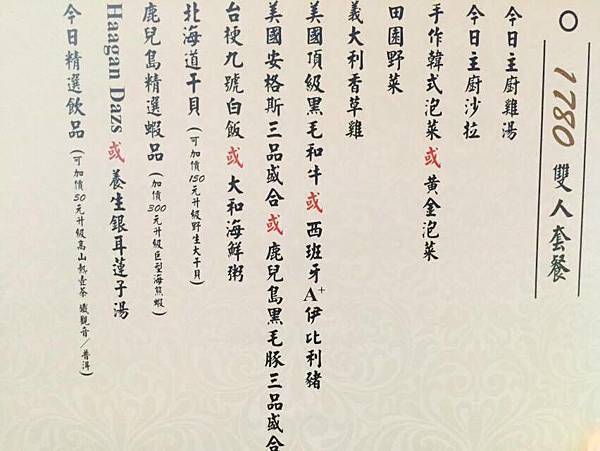 1780 雙人套餐
今日主廚雞湯
今日主廚沙拉
手作韓式泡菜 或 黃金泡菜
田園野菜
義大利香草雞
美國頂級黑毛和牛 或 西班牙A+伊比利豬
美國安格斯三品盛合 或 鹿兒島黑毛豚三品盛合
台梗九號白飯 或 大和海鮮粥
北海道干貝(可加價150元升級野生大干貝)
鹿兒島精選蝦品(加價300元升級巨型海熊蝦)
Haagan Dazs 或 養生銀耳蓮子湯
今日精選飲品(可加價50元升級高山熱壺茶 鐵觀音/普洱)